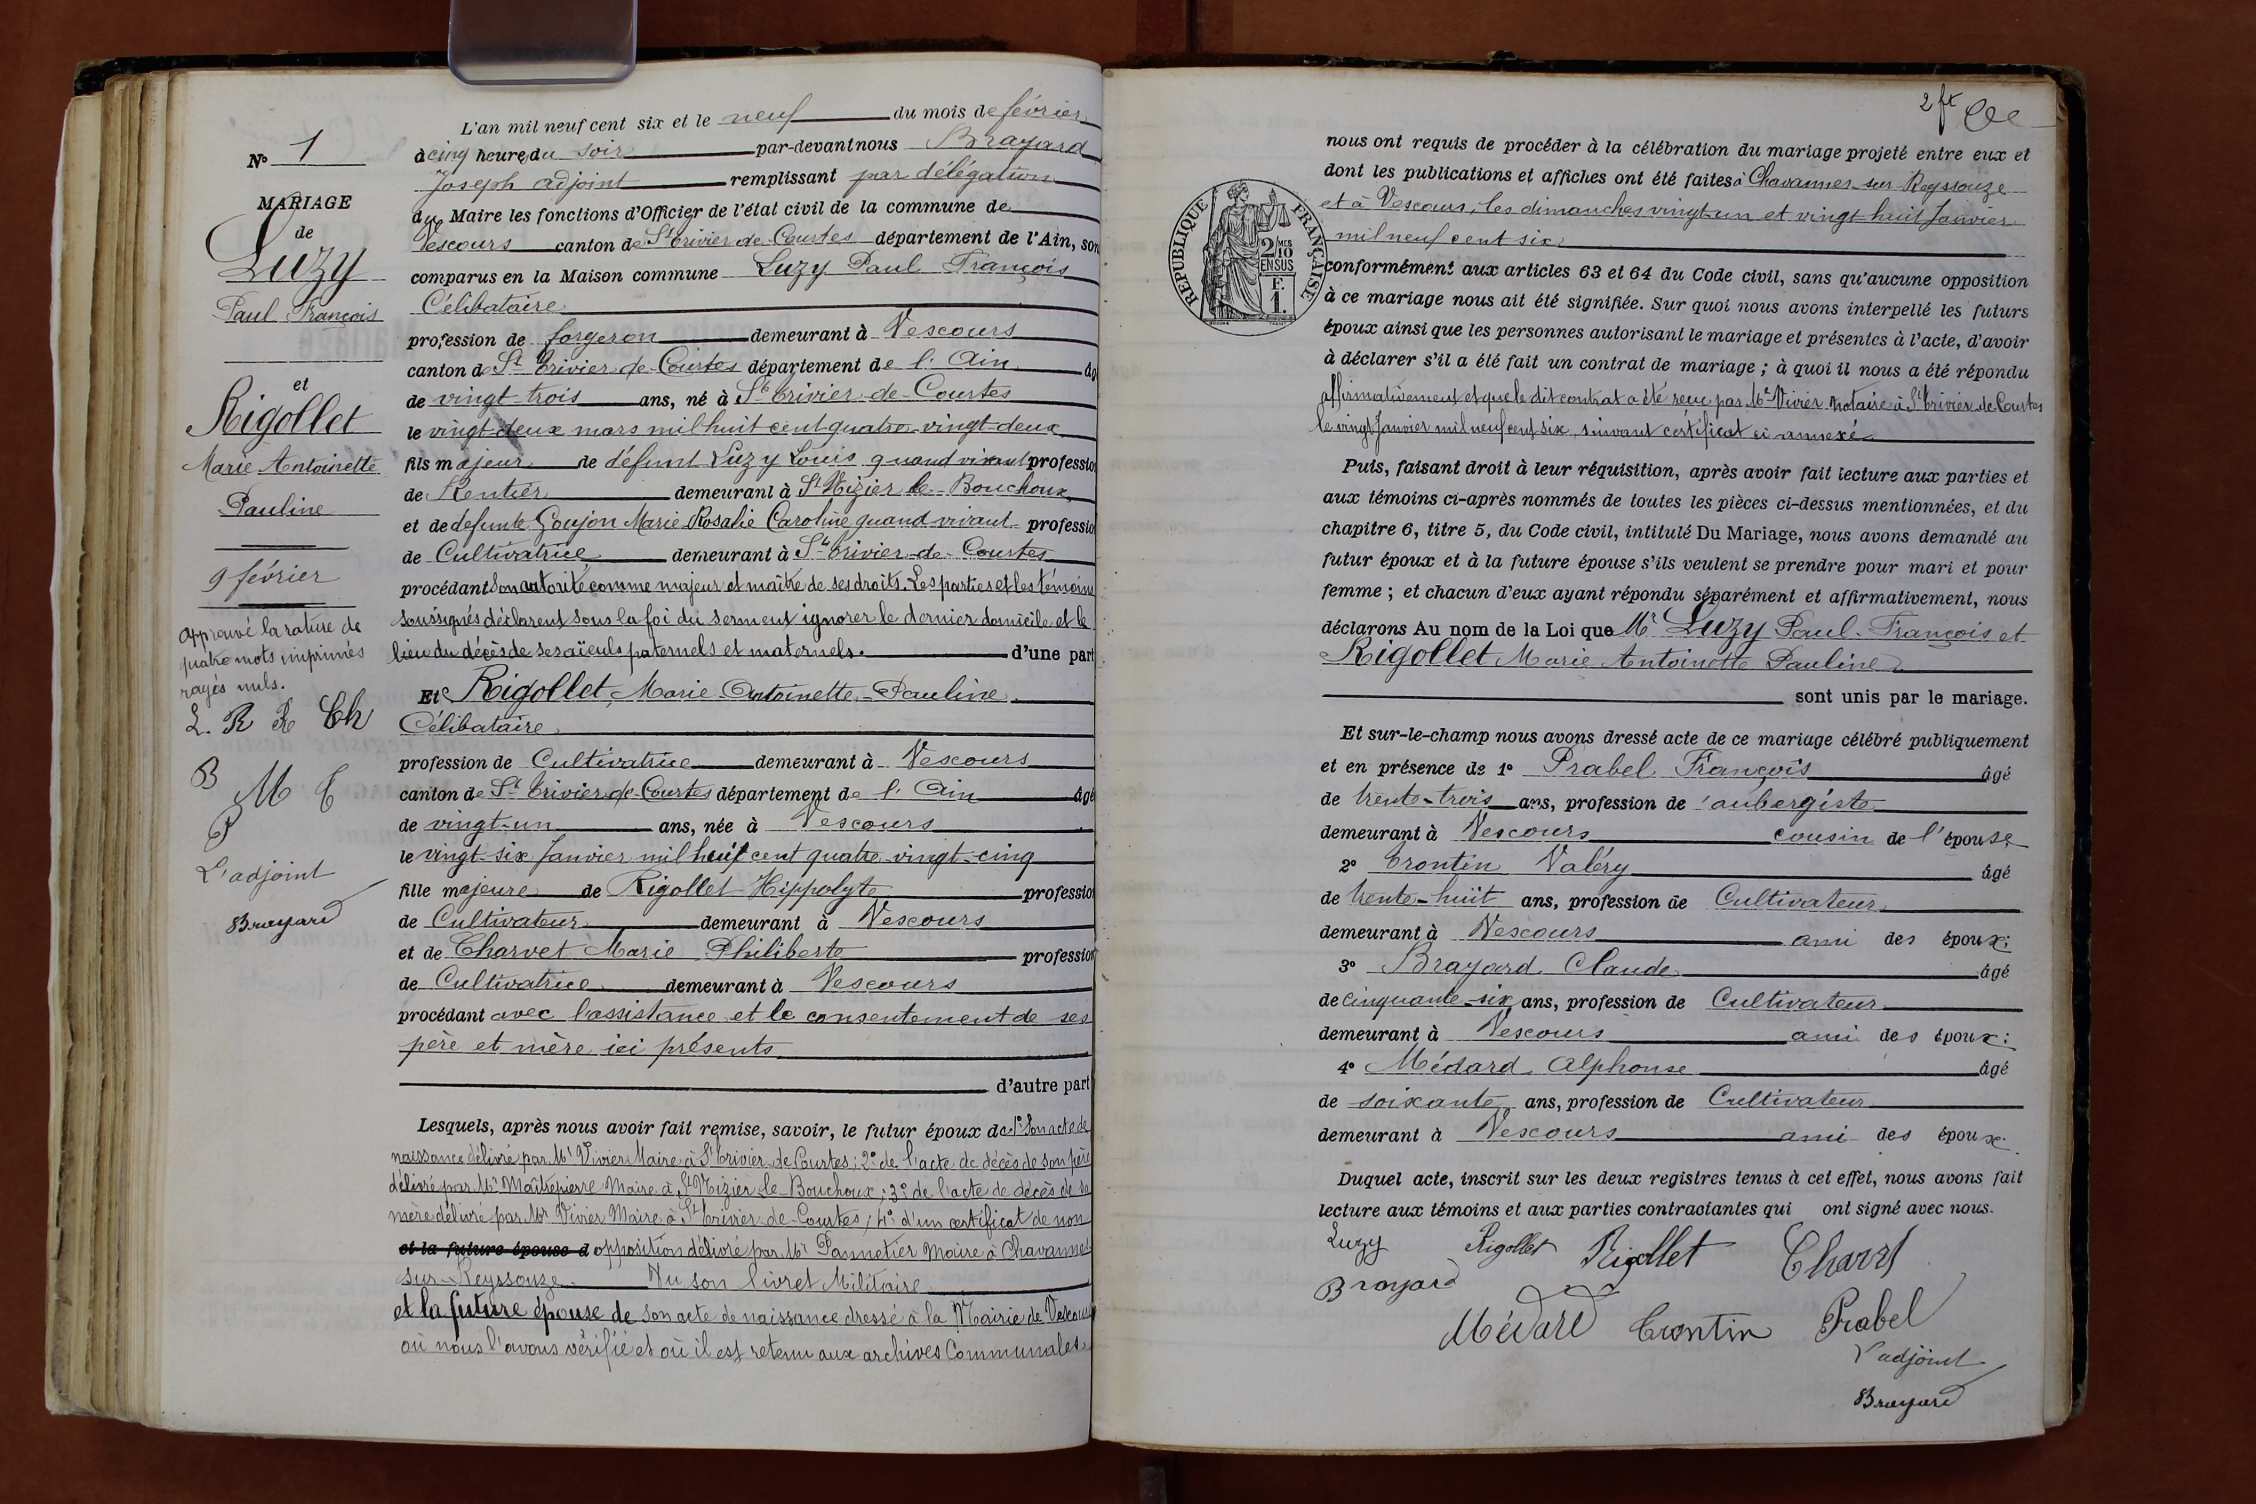 N° 1
MARIAGE
de
Luzy
Paul François
et
Rigollet
Marie Antoinette
Pauline
9 février
Approuvé la rature de
quatre mots imprimés
rayés nuls.
L. R R Ch
B M C
P
L'adjoint
Brayard
L'an mil neuf cent six et le neuf du mois de février
à cinq heures du soir par-devant nous Brayard
Joseph adjoint remplissant par délégation
du Maire les fonctions d'Officier de l'état civil de la commune de
Vescours canton de St Trivier de Courtes département de l'Ain, son
comparus en la Maison commune Luzy Paul François
Célibataire
profession de forgeron demeurant à Vescours
canton de St Trivier de Courtes département de l'Ain âg
de vingt trois ans, né à St Trivier de Courtes
le vingt deux mars mil huit cent quatre vingt deux
fils majeur de défunt Luzy Louis quand vivant profession
de Rentier demeurant à St Nizier le Bouchoux
et de defunte Goujon Marie Rosalie Caroline quand vivant profession
de Cultivatrice demeurant à St Trivier de Courtes
procédant son autorité comme majeur et maître de ses droits. Les parties et les témoins
soussignés déclarent sous la foi du serment ignorer le dernier domicile et le
lieu du décès de ses aïeuls paternels et maternels. d'une part
Et Rigollet, Marie Antoinette Pauline
Célibataire
profession de Cultivatrice demeurant à Vescours
canton de St Trivier de Courtes département de l'Ain âgé
de vingt-un ans, née à Vescours
le vingt-six Janvier mil huit cent quatre vingt-cinq
fille majeure de Rigollet Hippolyte profession
de Cultivateur demeurant à Vescours
et de Charvet Marie Philiberte profession
de Cultivatrice demeurant à Vescours
procédant avec l'assistance et le consentement de ses
père et mère ici présents
d'autre part
Lesquels, après nous avoir fait remise, savoir, le futur époux de 1° Son acte de
naissance délivré par Mr Vivier Maire à St Trivier de Courtes; 2° de l'acte de décès de son père
délivré par Mr Maîtrepierre Maire à St Nizier le Bouchoux; 3° de l'acte de décès de sa
mère délivré par Mr Vivier Maire à St Trivier de Courtes; 4° d'un certificat de non
et la future épouse d opposition délivré par Mr Pannetier Maire à Chavannes
sur Reyssouze. Vu son livret Militaire
et la future épouse de son acte de naissance dressé à la Mairie de Vescours
où nous l'avons vérifié et où il est retenu aux archives Communales.
2 ft
REPUBLIQUE FRANÇAISE
2/10 MES
EN SUS
F.
1.
nous ont requis de procéder à la célébration du mariage projeté entre eux et
dont les publications et affiches ont été faites à Chavannes sur Reyssouze
et à Vescours, les dimanches vingt un et vingt huit Janvier
mil neuf cent six
conformément aux articles 63 et 64 du Code civil, sans qu'aucune opposition
à ce mariage nous ait été signifiée. Sur quoi nous avons interpellé les futurs
époux ainsi que les personnes autorisant le mariage et présentes à l'acte, d'avoir
à déclarer s'il a été fait un contrat de mariage ; à quoi il nous a été répondu
affirmativement et que le dit contrat a été reçu par Me Vivier Notaire à St Trivier de Courtes
le vingt Janvier mil neuf cent six suivant certificat ci annexé
Puis, faisant droit à leur réquisition, après avoir fait lecture aux parties et
aux témoins ci-après nommés de toutes les pièces ci-dessus mentionnées, et du
chapitre 6, titre 5, du Code civil, intitulé Du Mariage, nous avons demandé au
futur époux et à la future épouse s'ils veulent se prendre pour mari et pour
femme ; et chacun d'eux ayant répondu séparément et affirmativement, nous
déclarons Au nom de la Loi que Mr Luzy Paul François et
Rigollet Marie Antoinette Pauline
sont unis par le mariage.
Et sur-le-champ nous avons dressé acte de ce mariage célébré publiquement
et en présence de 1° Prabel François âgé
de trente-trois ans, profession de aubergiste
demeurant à Vescours cousin de l'épouse
2° Trontin Valéry âgé
de trente-huit ans, profession de Cultivateur
demeurant à Vescours ami des époux;
3° Brayard Claude âgé
de cinquante-six ans, profession de Cultivateur
demeurant à Vescours ami des époux;
4° Médard Alphonse âgé
de soixante ans, profession de Cultivateur
demeurant à Vescours ami des époux.
Duquel acte, inscrit sur les deux registres tenus à cet effet, nous avons fait
lecture aux témoins et aux parties contractantes qui ont signé avec nous.
Luzy Rigollet Rigollet
Brayard
Médard Trontin Prabel
L'adjoint
Brayard